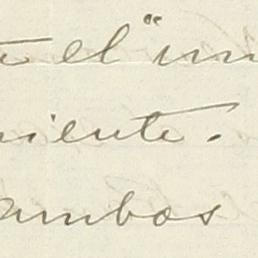 el "un
iente.
ambos